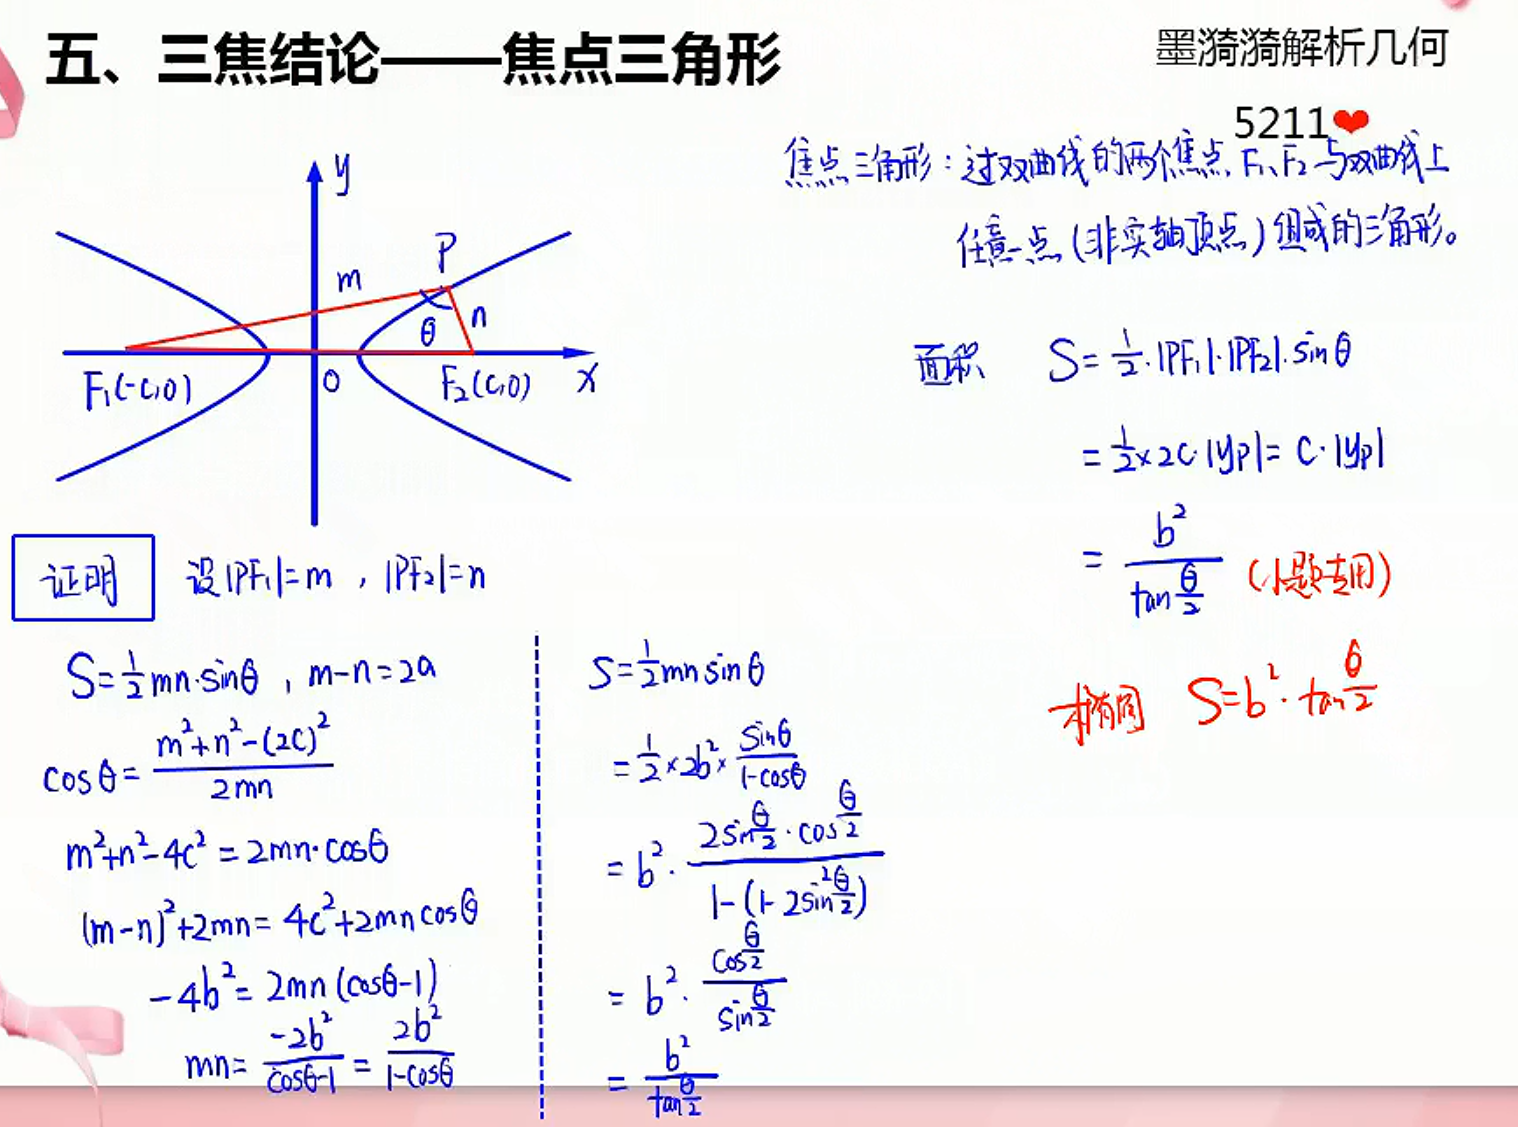 五、三焦结论——焦点三角形
墨漪漪解析几何
5211❤
焦点三角形：过双曲线的两个焦点F₁、F₂与双曲线上
任意一点(非实轴顶点)组成的三角形。
y
P
m
n
θ
F₁(-c,0)
0
F₂(c,0)
x
面积 S=½·|PF₁|·|PF₂|·sinθ
=½×2c·|yp|=c·|yp|
=b²/tan(θ/2) (小题专用)
椭圆 S=b²·tan(θ/2)
证明 设|PF₁|=m，|PF₂|=n
S=½mn·sinθ，m-n=2a
cosθ=(m²+n²-(2c)²)/(2mn)
m²+n²-4c²=2mn·cosθ
(m-n)²+2mn=4c²+2mncosθ
-4b²=2mn(cosθ-1)
mn=(-2b²)/(cosθ-1)=(2b²)/(1-cosθ)
S=½mnsinθ
=½×2b²×sinθ/(1-cosθ)
=b²·(2sin(θ/2)·cos(θ/2))/(1-(1-2sin²(θ/2)))
=b²·cos(θ/2)/sin(θ/2)
=b²/tan(θ/2)